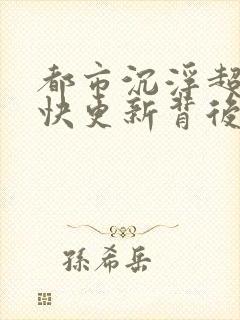 都市沉浮超
快更新背後
孫希岳